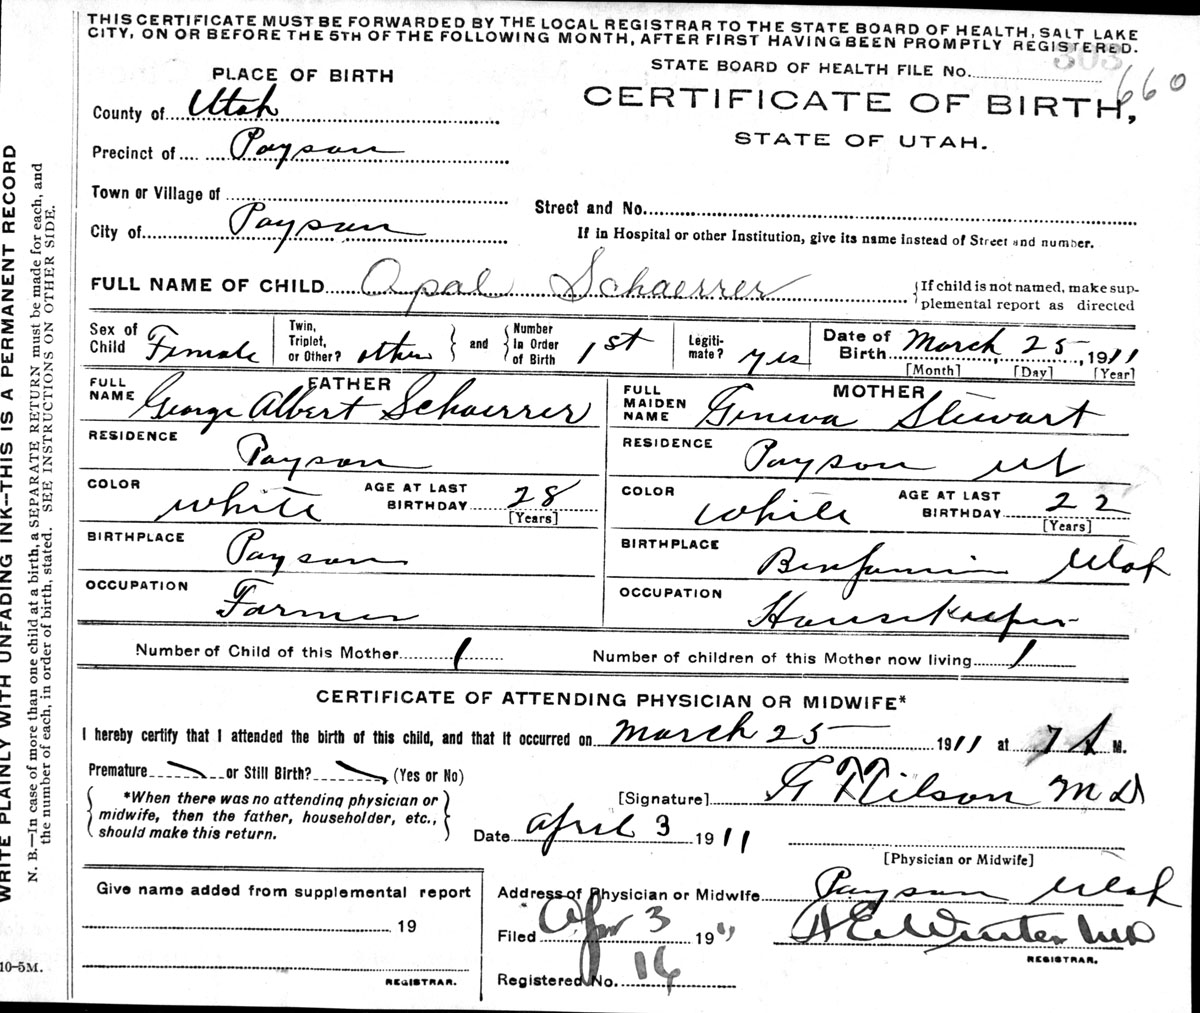 THIS CERTIFICATE MUST BE FORWARDED BY THE LOCAL REGISTRAR TO THE STATE BOARD OF HEALTH, SALT LAKE
CITY, ON OR BEFORE THE 5TH OF THE FOLLOWING MONTH, AFTER FIRST HAVING BEEN PROMPTLY REGISTERED.
303
STATE BOARD OF HEALTH FILE No. 660
PLACE OF BIRTH
CERTIFICATE OF BIRTH,
STATE OF UTAH.
County of Utah
Precinct of Payson
Town or Village of
Street and No.
City of Payson
If in Hospital or other Institution, give its name instead of Street and number.
FULL NAME OF CHILD Opal Schaerrer
{If child is not named, make sup-
plemental report as directed
Sex of Child Female
Twin, Triplet, or Other? other
and
Number In Order of Birth 1st
Legiti-mate? yes
Date of Birth March 25, 1911
[Month] [Day] [Year]
FATHER
FULL NAME George Albert Schaerrer
RESIDENCE Payson
COLOR white AGE AT LAST BIRTHDAY 28
[Years]
BIRTHPLACE Payson
OCCUPATION Farmer
MOTHER
FULL MAIDEN NAME Geneva Stewart
RESIDENCE Payson Ut
COLOR white AGE AT LAST BIRTHDAY 22
[Years]
BIRTHPLACE Benjamin Utah
OCCUPATION Housekeeper
Number of Child of this Mother 1 Number of children of this Mother now living 1
CERTIFICATE OF ATTENDING PHYSICIAN OR MIDWIFE*
I hereby certify that I attended the birth of this child, and that it occurred on March 25 1911 at 7 A M.
Premature or Still Birth? (Yes or No)
*When there was no attending physician or
midwife, then the father, householder, etc.,
should make this return.
[Signature] Tilson M D
Date April 3 1911
[Physician or Midwife]
Give name added from supplemental report
19
REGISTRAR.
Address of Physician or Midwife Payson Utah
Filed Apr 3 1911
A E Winter M D
REGISTRAR.
Registered No. 16
WRITE PLAINLY WITH UNFADING INK—THIS IS A PERMANENT RECORD
N. B.—In case of more than one child at a birth, a SEPARATE RETURN must be made for each, and
the number of each, in order of birth, stated. SEE INSTRUCTIONS ON OTHER SIDE.
10-5M.